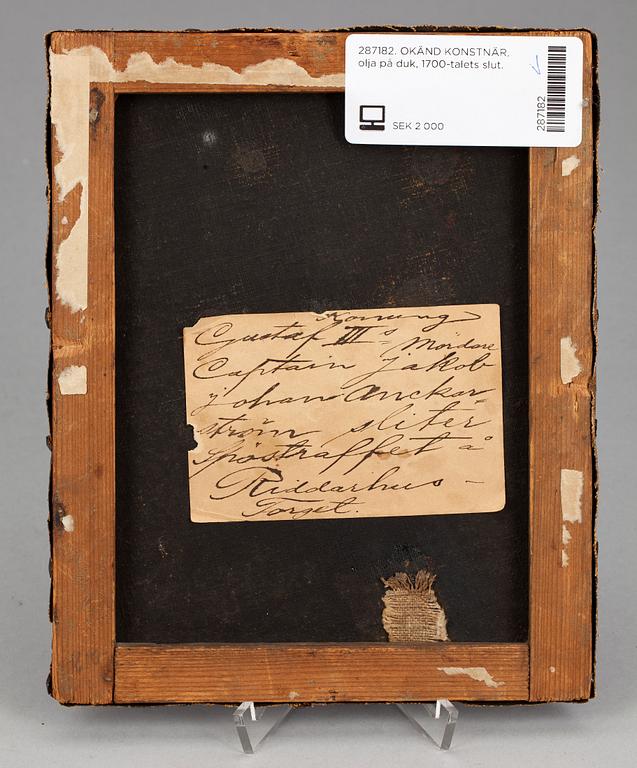 287182. OKÄND KONSTNÄR,
olja på duk, 1700-talets slut.
SEK 2 000
287182
Konung
Gustaf III s Mördare
Captain jakob
johan Anckar-
ström sliter
Spöstraffet å
Riddarhus-
Torget.